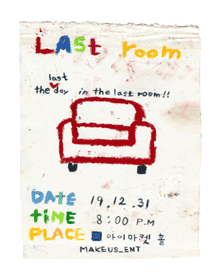 LAst room
the last day in the last room!!
DATE 19.12.31
tiME 8:00 P.M
PLACE 아이마켓 홀
MAKEUS_ENT